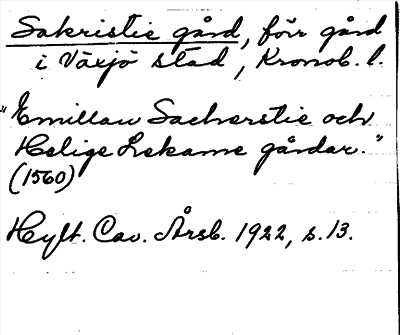 Sakristie gård, förr gård
i Växjö stad, Kronob. l.
"Emillan Sacherstie och
Helige Lekame gårdar."
(1560)
Hylt. Cav. Årsb. 1922, s. 13.